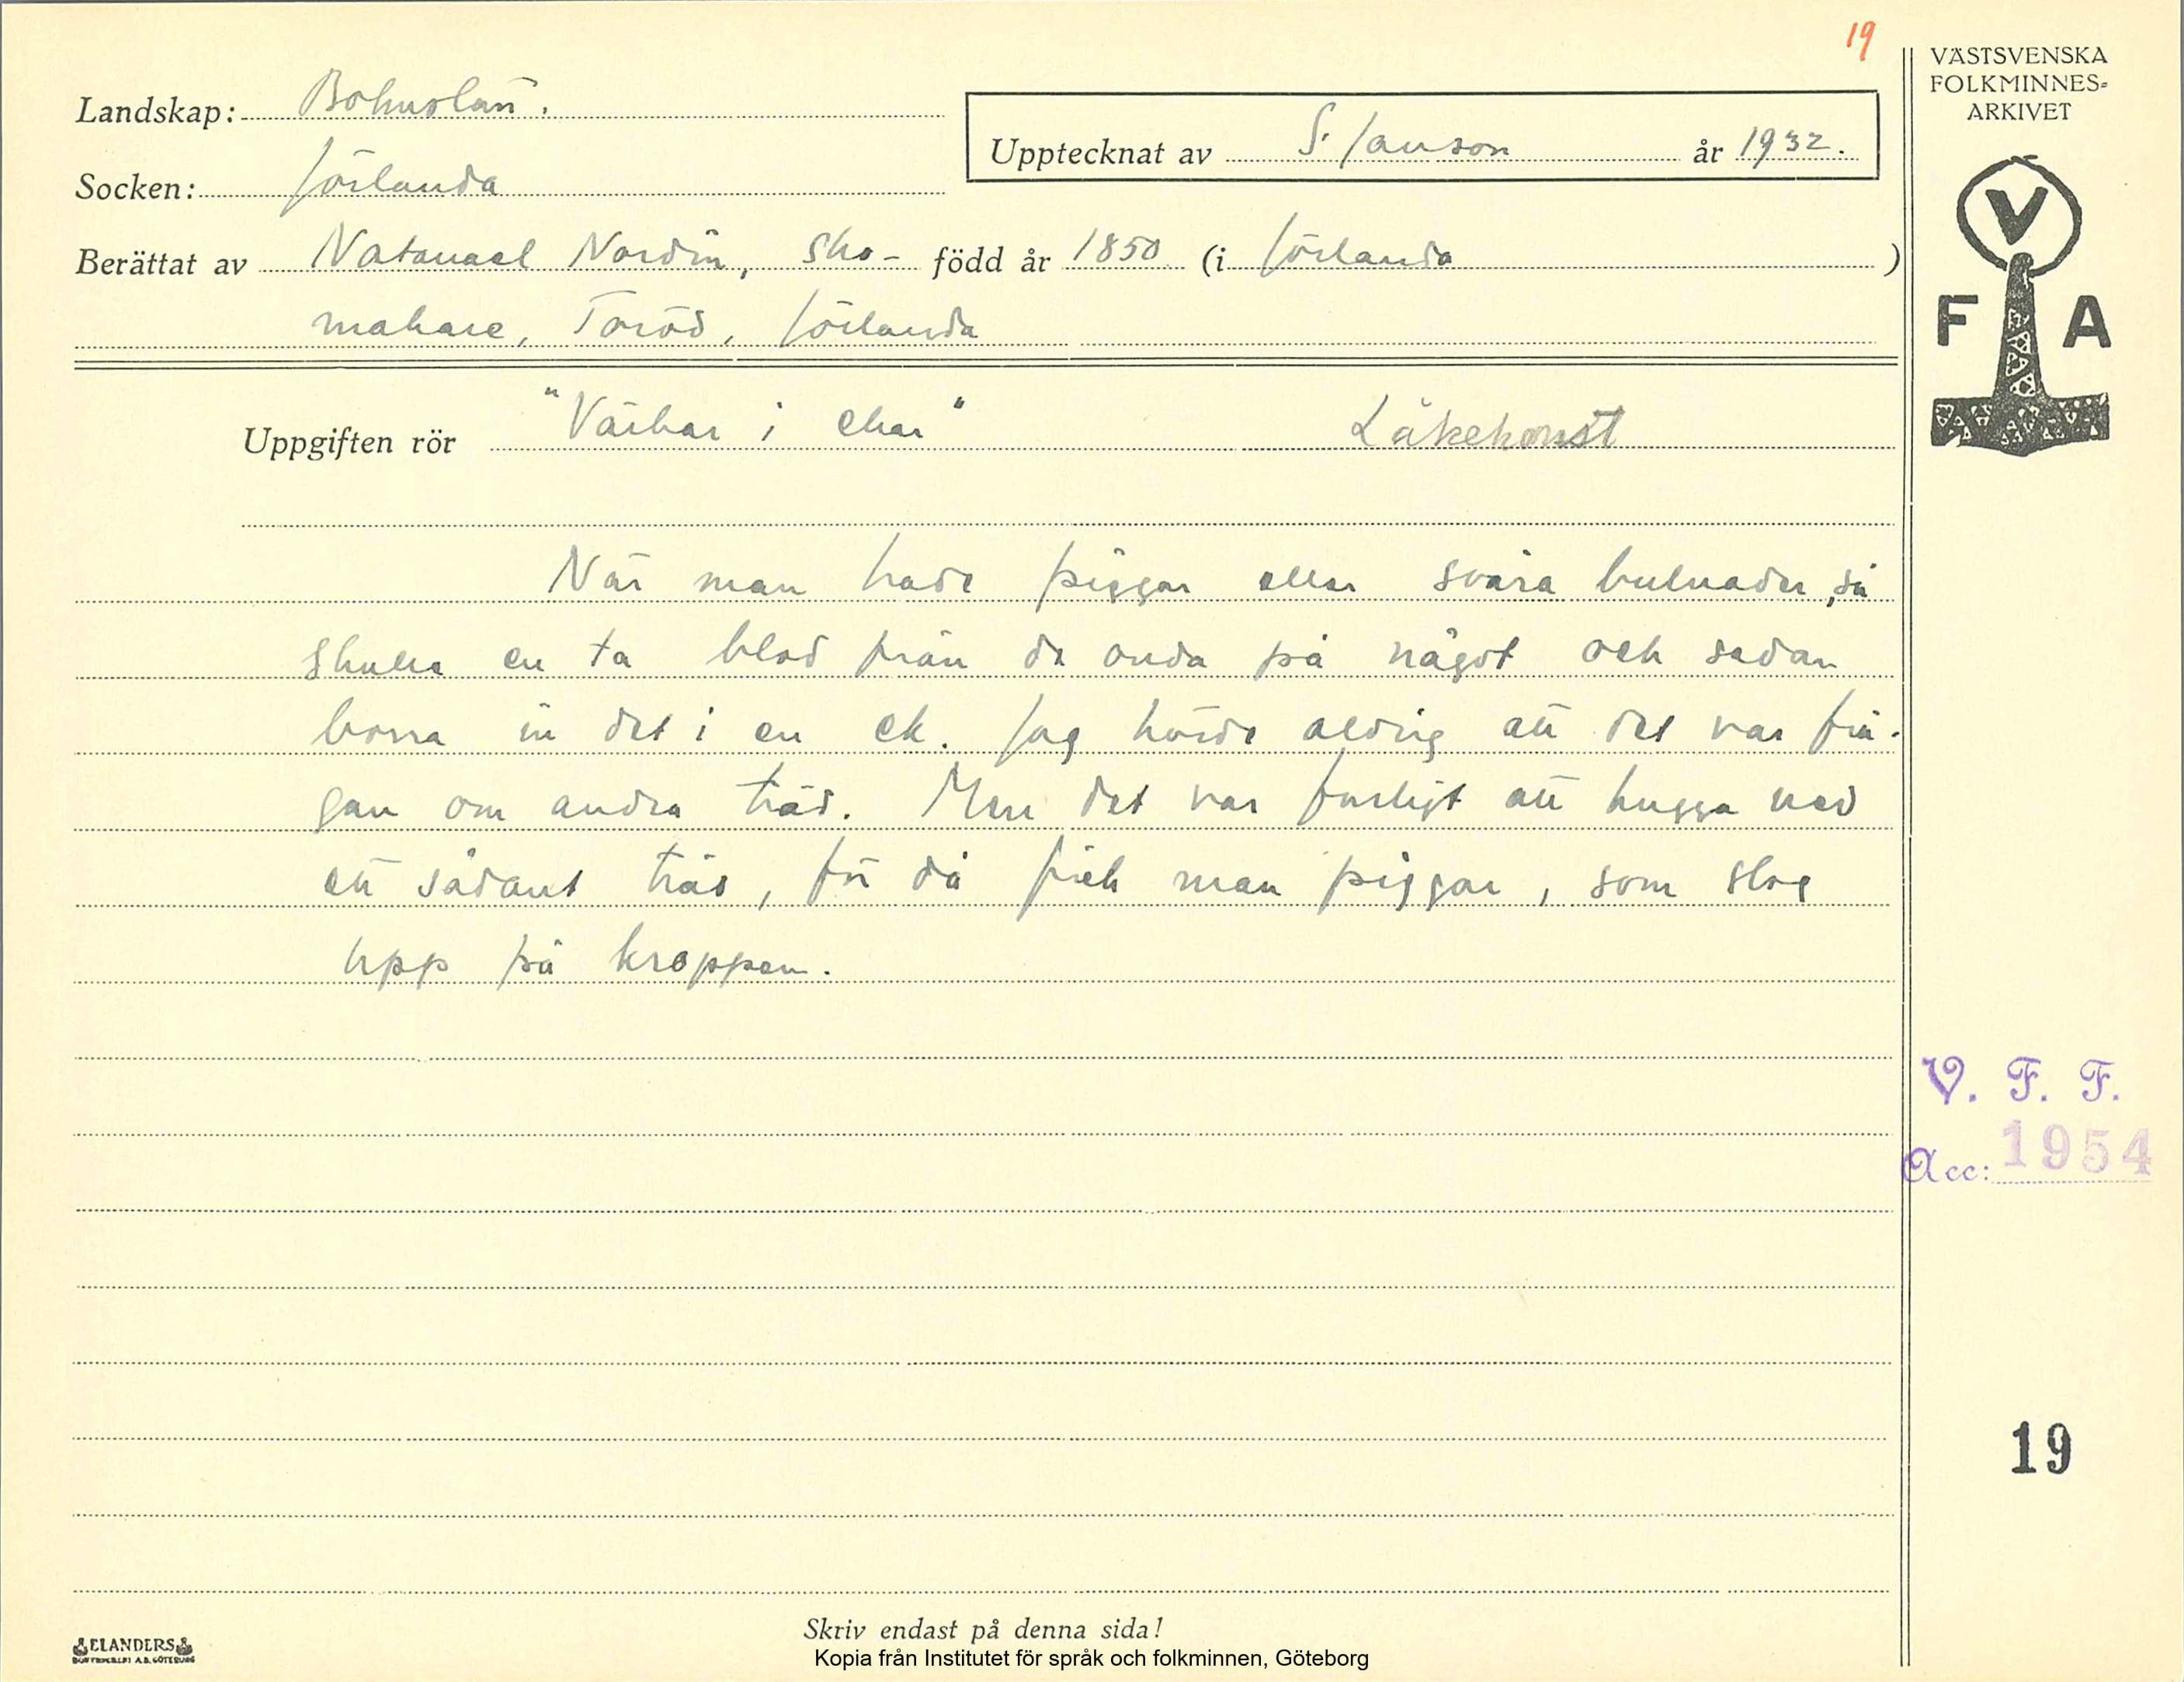 19
Landskap: Bohuslän.
Upptecknat av S. Janson år 1932.
Socken: Jörlanda
Berättat av Natanael Nordin, sko- född år 1850 (i Jörlanda)
makare, Toröd, Jörlanda
Uppgiften rör "Värkar i ekar" Läkekonst
När man hade piggar eller svåra bulnader, så
skulle en ta blod från de onda på något och sedan
borra in det i en ek. Jag hörde aldrig att det var frå-
gan om andra träd. Men det var farligt att hugga ned
ett sådant träd, för då fick man piggar, som slog
upp på kroppen.
VÄSTSVENSKA
FOLKMINNES-
ARKIVET
V
F A
V. F. F.
Acc: 1954
19
Skriv endast på denna sida!
ELANDERS
BOKTRYCKERI A.B. GÖTEBORG
Kopia från Institutet för språk och folkminnen, Göteborg